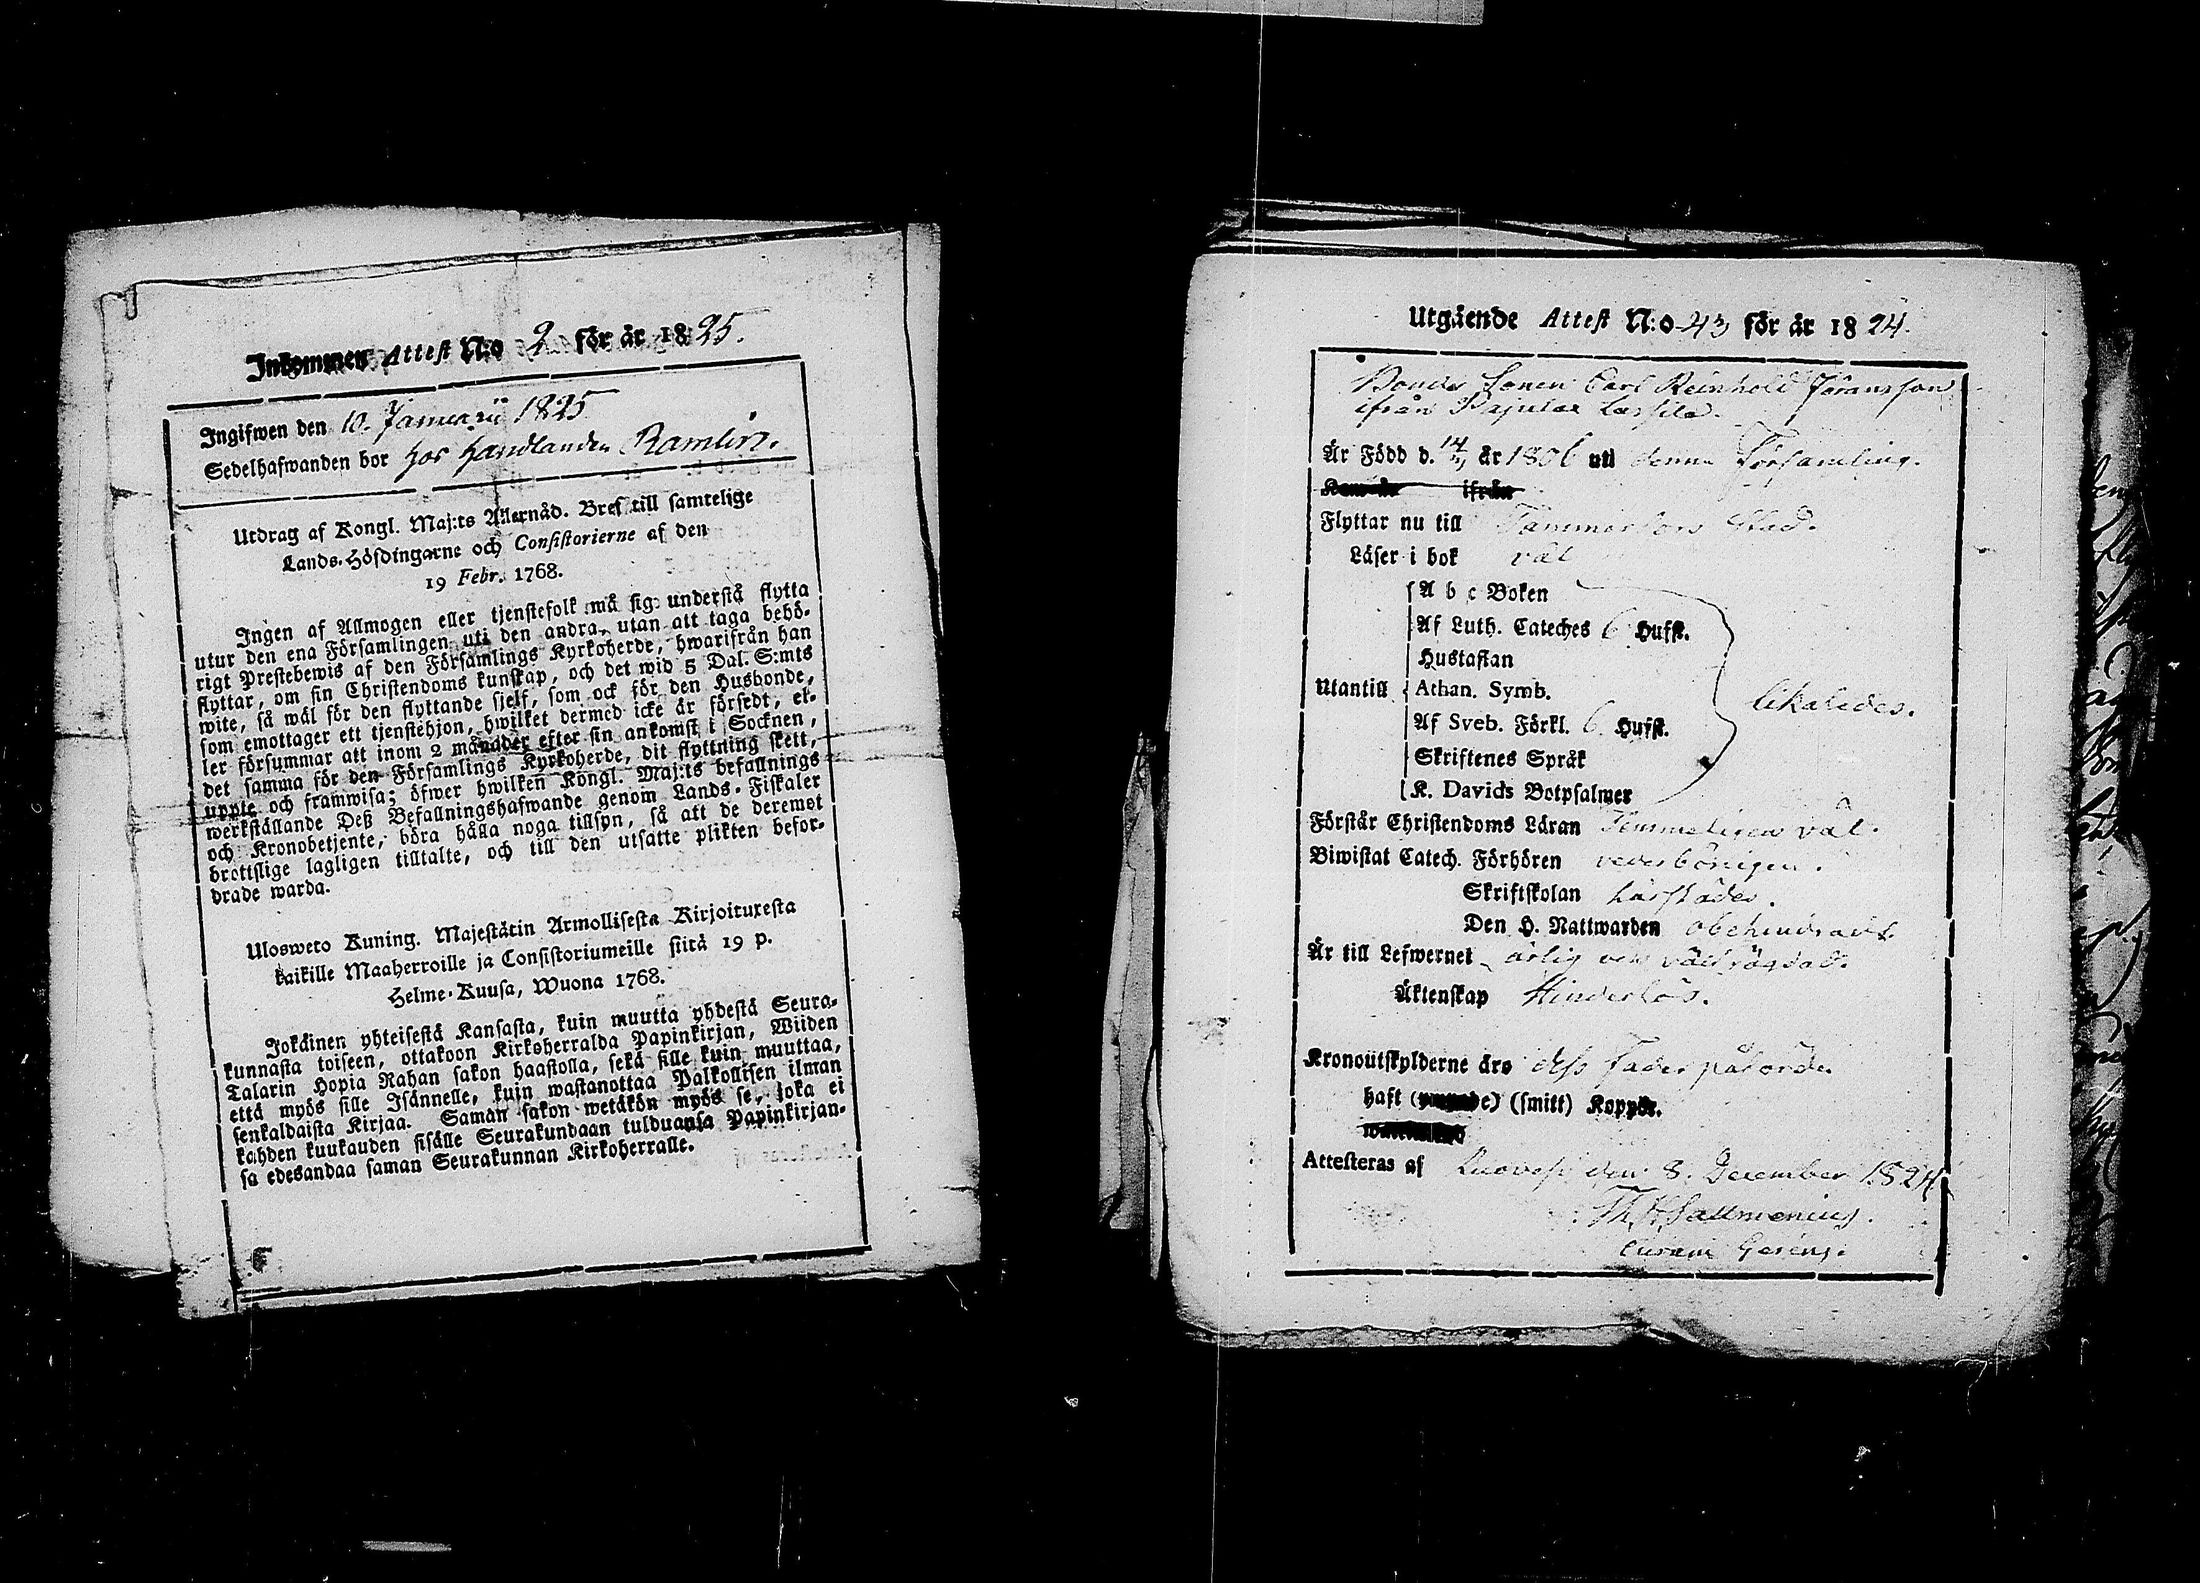 Inkommen Attest N:o 2 för år 1825.
Ingifwen den 10. Januarii 1825
Sedelhafwanden bor hos Handlanden Ramlin.
Utdrag af Kongl. Maj:ts Allernåd. Bref till samtelige
Lands-Höfdingarne och Consistorierne af den
19 Febr. 1768.
Ingen af Allmogen eller tjenstefolk må sig understå flytta
utur den ena Församlingen uti den andra, utan att taga behö-
rigt Prestebewis af den Församlings Kyrkoherde, hwarifrån han
flyttar, om sin Christendoms kunskap, och det wid 5 Dal. S:mts
wite, så wäl för den flyttande sjelf, som ock för den Husbonde,
som emottager ett tjenstehjon, hwilket dermed icke är försedt, el-
ler försummar att inom 2 månader efter sin ankomst i Socknen,
det samma för den Församlings Kyrkoherde, dit flyttning skett,
uppte och framwisa; öfwer hwilken Kongl. Maj:ts befallnings
werkställande Deß Befallningshafwande genom Lands-Fiskaler
och Kronobetjente, böra hålla noga tillsyn, så att de deremot
brottslige lagligen tilltalte, och till den utsatte plikten befor-
drade warda.
Ulosweto Kuning. Majestätin Armollisesta Kirjoituxesta
kaikille Maaherroille ja Consistoriumeille siitä 19 p.
Helme-Kuusa, Wuona 1768.
Jokainen yhteisestä Kansasta, kuin muutta yhdestä Seura-
kunnasta toiseen, ottakoon Kirkoherralda Papinkirjan, Wiiden
Talarin Hopia Rahan sakon haastolla, sekä sille kuin muuttaa,
että myös sille Isännelle, kuin wastanottaa Palkollisen ilman
senkaldaista Kirjaa. Saman sakon wetäkön myös se, joka ei
kahden kuukauden sisälle Seurakundaan tulduansa Papinkirjan-
sa edesandaa saman Seurakunnan Kirkoherralle.
Utgående Attest N:o 43 för år 1824.
Bonde Sonen Carl Reinhold Jöransson
ifrån Pajulax Lassila.
Är Född d. 14/3 år 1806 uti denna Församling.
Kom år ifrån
Flyttar nu till Tammerfors Stad.
Läser i bok väl
A b c Boken
Af Luth. Cateches 6 Hufst.
Hustaflan
Utantill Athan. Symb. likaledes.
Af Sveb. Förkl. 6 Hufst.
Skriftenes Språk
K. Davids Botpsalmer
Förstår Christendoms Läran Temmeligen väl.
Biwistat Catech. Förhören vederbörligen.
Skriftskolan härstädes.
Den H. Nattwarden obehindradt.
Är till Lefwernet ärlig och välfrägdad.
Äktenskap Hinderlös.
Kronoutskylderne äro dess Fader påförde.
haft (smitt) Koppor.
Attesteras af Ruovesi den 8. December 1824
Th. Salmenius.
Curam Gerens.